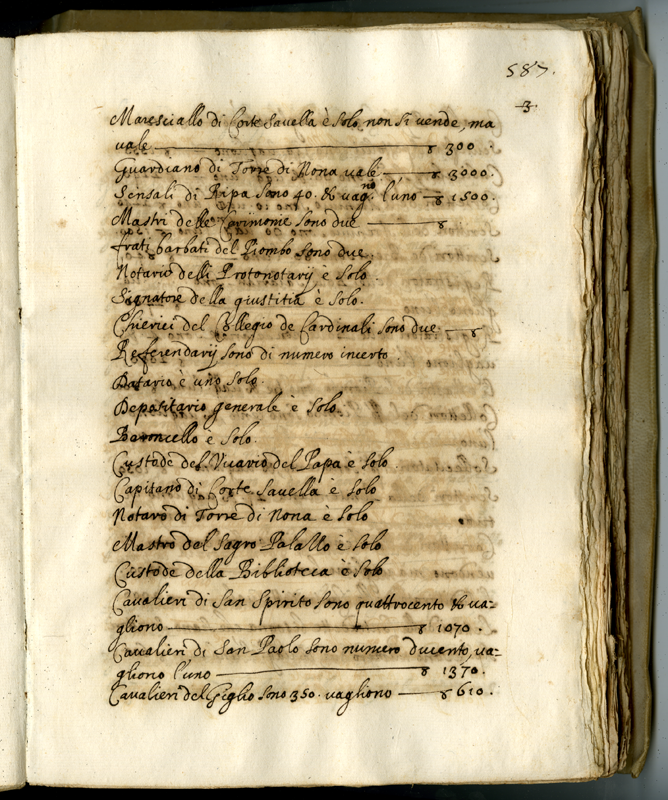 587.
3.
Maresciallo di Corte Savella è solo, non si vende, ma
vale — ꝟ 300
Guardiano di Torre di Nona vale — ꝟ 3000.
Sensali di Ripa sono 40. & vag.no l'uno — ꝟ 1500.
Mastri delle Cerimonie sono due — ꝟ
frati barbati del Piombo sono due.
Notario delli Protonotarij è solo.
Signatore della giustitia è solo.
Chierici del Collegio de Cardinali sono due — ꝟ
Referendarij sono di numero incerto.
Datario è uno solo.
Depositario generale è solo.
Baroncello è solo.
Custode del Vicario del Papa è solo.
Capitano di Corte Savella è solo
Notaro di Torre di Nona è solo
Mastro del Sagro Palallo è solo
Custode della Biblioteca è solo
Cavalieri di San Spirito sono quattrocento & va=
gliono — ꝟ 1070.
Cavalieri di San Paolo sono numero ducento, va=
gliono l'uno — ꝟ 1370.
Cavalieri del Giglio sono 350. vagliono — ꝟ 610.